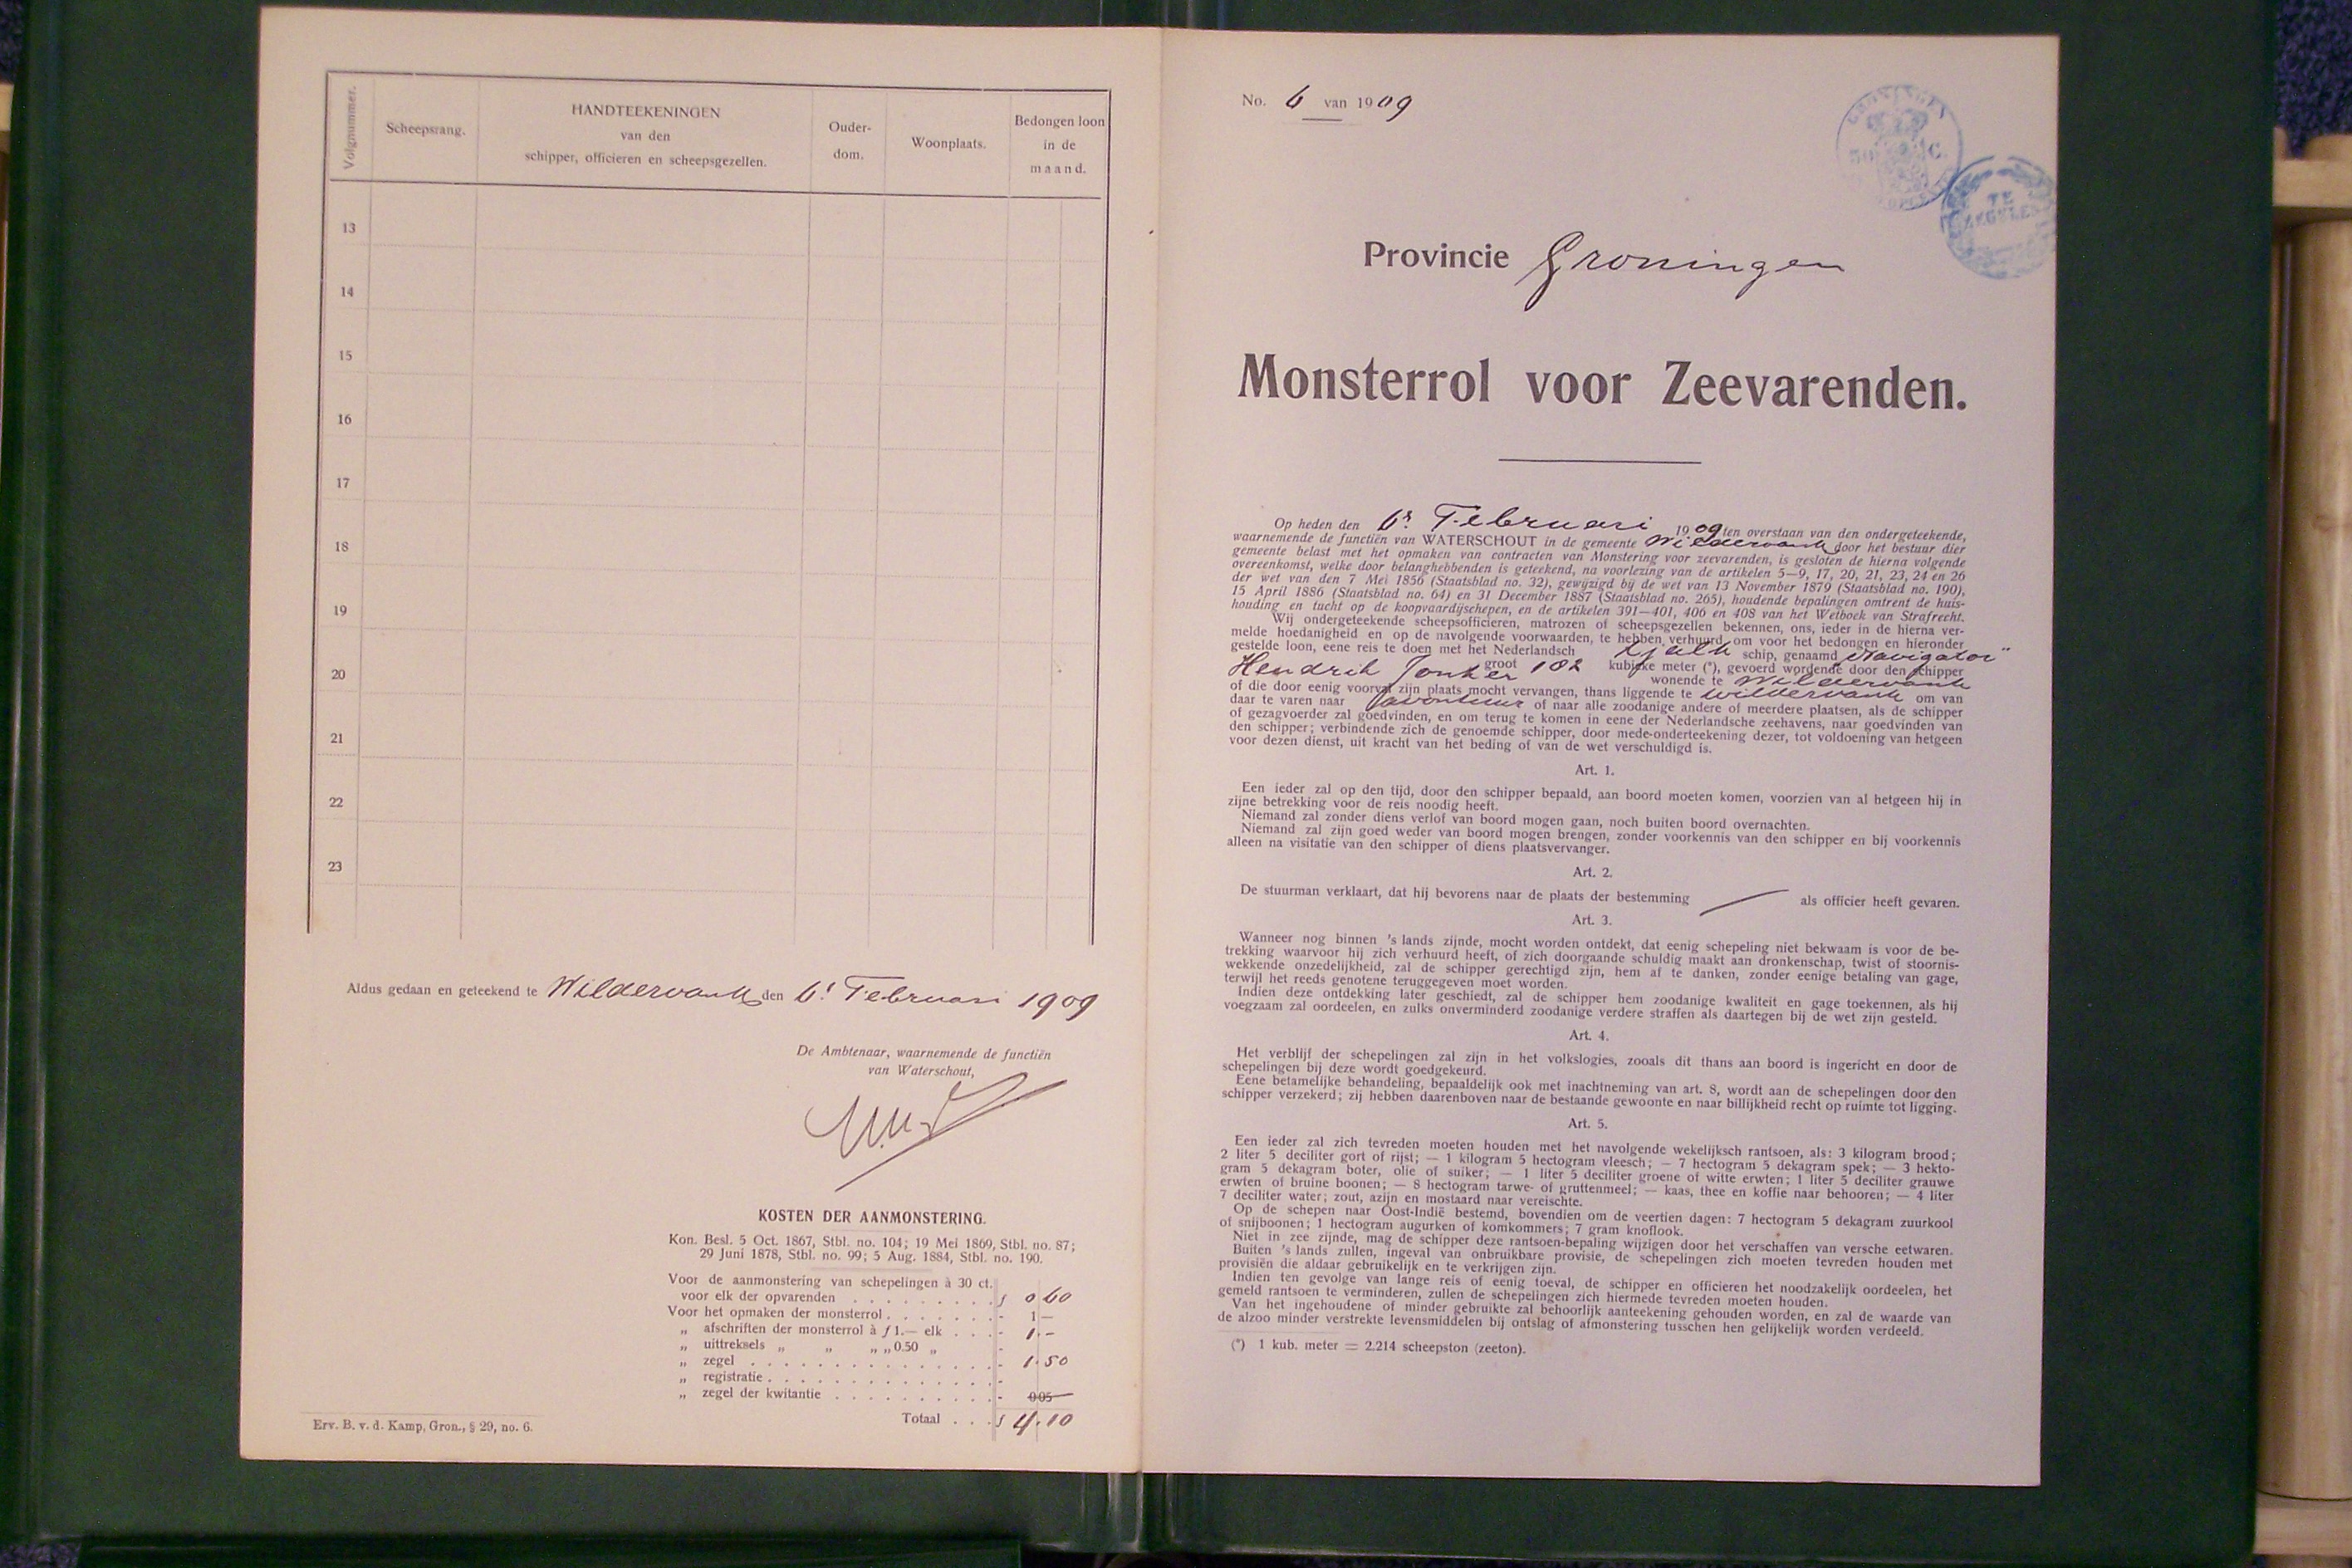 Volgnummer.
Scheepsrang.
HANDTEEKENINGEN
van den
schipper, officieren en scheepsgezellen.
Ouder-
dom.
Woonplaats.
Bedongen loon
in de
maand.
13
14
15
16
17
18
19
20
21
22
23
Aldus gedaan en geteekend te Wildervank den 6e Februari 1909
De Ambtenaar, waarnemende de functiën
van Waterschout,
KOSTEN DER AANMONSTERING.
Kon. Besl. 5 Oct. 1867, Stbl. no. 104; 19 Mei 1869, Stbl. no. 87;
29 Juni 1878, Stbl. no. 99; 5 Aug. 1884, Stbl. no. 190.
Voor de aanmonstering van schepelingen à 30 ct.
voor elk der opvarenden . . . . . . . . . f 0 60
Voor het opmaken der monsterrol . . . . . . . - 1 —
„ afschriften der monsterrol à f 1.— elk . . . - 1.-
„ uittreksels „ „ „ „ 0.50 „ -
„ zegel . . . . . . . . . . . . . . . - 1.50
„ registratie . . . . . . . . . . . . . . -
„ zegel der kwitantie . . . . . . . . . . - 0 05
Totaal . . . f 4.10
Erv. B. v. d. Kamp, Gron., § 29, no. 6.
No. 6 van 1909
GRONINGEN
50 C.
TE
ZEGELEN
Provincie Groningen
Monsterrol voor Zeevarenden.
Op heden den 6e Februari 1909 ten overstaan van den ondergeteekende,
waarnemende de functiën van WATERSCHOUT in de gemeente Wildervank door het bestuur dier
gemeente belast met het opmaken van contracten van Monstering voor zeevarenden, is gesloten de hierna volgende
overeenkomst, welke door belanghebbenden is geteekend, na voorlezing van de artikelen 5—9, 17, 20, 21, 23, 24 en 26
der wet van den 7 Mei 1856 (Staatsblad no. 32), gewijzigd bij de wet van 13 November 1879 (Staatsblad no. 190),
15 April 1886 (Staatsblad no. 64) en 31 December 1887 (Staatsblad no. 265), houdende bepalingen omtrent de huis-
houding en tucht op de koopvaardijschepen, en de artikelen 391—401, 406 en 408 van het Wetboek van Strafrecht.
Wij ondergeteekende scheepsofficieren, matrozen of scheepsgezellen bekennen, ons, ieder in de hierna ver-
melde hoedanigheid en op de navolgende voorwaarden, te hebben verhuurd om voor het bedongen en hieronder
gestelde loon, eene reis te doen met het Nederlandsch tjalk schip, genaamd „Navigator"
groot 182 kubieke meter (*), gevoerd wordende door den schipper
Hendrik Jonker wonende te Wildervank
of die door eenig voorval zijn plaats mocht vervangen, thans liggende te Wildervank om van
daar te varen naar avontuur of naar alle zoodanige andere of meerdere plaatsen, als de schipper
of gezagvoerder zal goedvinden, en om terug te komen in eene der Nederlandsche zeehavens, naar goedvinden van
den schipper; verbindende zich de genoemde schipper, door mede-onderteekening dezer, tot voldoening van hetgeen
voor dezen dienst, uit kracht van het beding of van de wet verschuldigd is.
Art. 1.
Een ieder zal op den tijd, door den schipper bepaald, aan boord moeten komen, voorzien van al hetgeen hij in
zijne betrekking voor de reis noodig heeft.
Niemand zal zonder diens verlof van boord mogen gaan, noch buiten boord overnachten.
Niemand zal zijn goed weder van boord mogen brengen, zonder voorkennis van den schipper en bij voorkennis
alleen na visitatie van den schipper of diens plaatsvervanger.
Art. 2.
De stuurman verklaart, dat hij bevorens naar de plaats der bestemming als officier heeft gevaren.
Art. 3.
Wanneer nog binnen 's lands zijnde, mocht worden ontdekt, dat eenig schepeling niet bekwaam is voor de be-
trekking waarvoor hij zich verhuurd heeft, of zich doorgaande schuldig maakt aan dronkenschap, twist of stoornis-
wekkende onzedelijkheid, zal de schipper gerechtigd zijn, hem af te danken, zonder eenige betaling van gage,
terwijl het reeds genotene teruggegeven moet worden.
Indien deze ontdekking later geschiedt, zal de schipper hem zoodanige kwaliteit en gage toekennen, als hij
voegzaam zal oordeelen, en zulks onverminderd zoodanige verdere straffen als daartegen bij de wet zijn gesteld.
Art. 4.
Het verblijf der schepelingen zal zijn in het volkslogies, zooals dit thans aan boord is ingericht en door de
schepelingen bij deze wordt goedgekeurd.
Eene betamelijke behandeling, bepaaldelijk ook met inachtneming van art. 8, wordt aan de schepelingen door den
schipper verzekerd; zij hebben daarenboven naar de bestaande gewoonte en naar billijkheid recht op ruimte tot ligging.
Art. 5.
Een ieder zal zich tevreden moeten houden met het navolgende wekelijksch rantsoen, als: 3 kilogram brood;
2 liter 5 deciliter gort of rijst; — 1 kilogram 5 hectogram vleesch; — 7 hectogram 5 dekagram spek; — 3 hekto-
gram 5 dekagram boter, olie of suiker; — 1 liter 5 deciliter groene of witte erwten; 1 liter 5 deciliter grauwe
erwten of bruine boonen; — 8 hectogram tarwe- of gruttenmeel; — kaas, thee en koffie naar behooren; — 4 liter
7 deciliter water; zout, azijn en mostaard naar vereischte.
Op de schepen naar Oost-Indië bestemd, bovendien om de veertien dagen: 7 hectogram 5 dekagram zuurkool
of snijboonen; 1 hectogram augurken of komkommers; 7 gram knoflook.
Niet in zee zijnde, mag de schipper deze rantsoen-bepaling wijzigen door het verschaffen van versche eetwaren.
Buiten 's lands zullen, ingeval van onbruikbare provisie, de schepelingen zich moeten tevreden houden met
provisiën die aldaar gebruikelijk en te verkrijgen zijn.
Indien ten gevolge van lange reis of eenig toeval, de schipper en officieren het noodzakelijk oordeelen, het
gemeld rantsoen te verminderen, zullen de schepelingen zich hiermede tevreden moeten houden.
Van het ingehoudene of minder gebruikte zal behoorlijk aanteekening gehouden worden, en zal de waarde van
de alzoo minder verstrekte levensmiddelen bij ontslag of afmonstering tusschen hen gelijkelijk worden verdeeld.
(*) 1 kub. meter = 2.214 scheepston (zeeton).